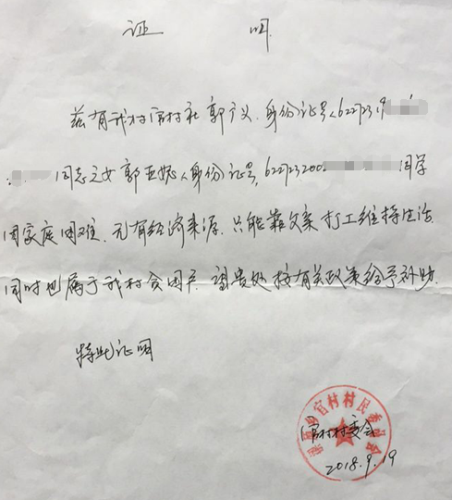 证 明
兹有我村官村社郭广义,身份证号,62272319
同志之女郭亚妮(身份证号,62272320020 同学
因家庭困难,无有经济来源,只能靠父亲打工维持生活,
同时也属于我村贫困户,请贵处按有关政策给予补助.
特此证明
官村村民委员会
官村村委会
2018.9.19